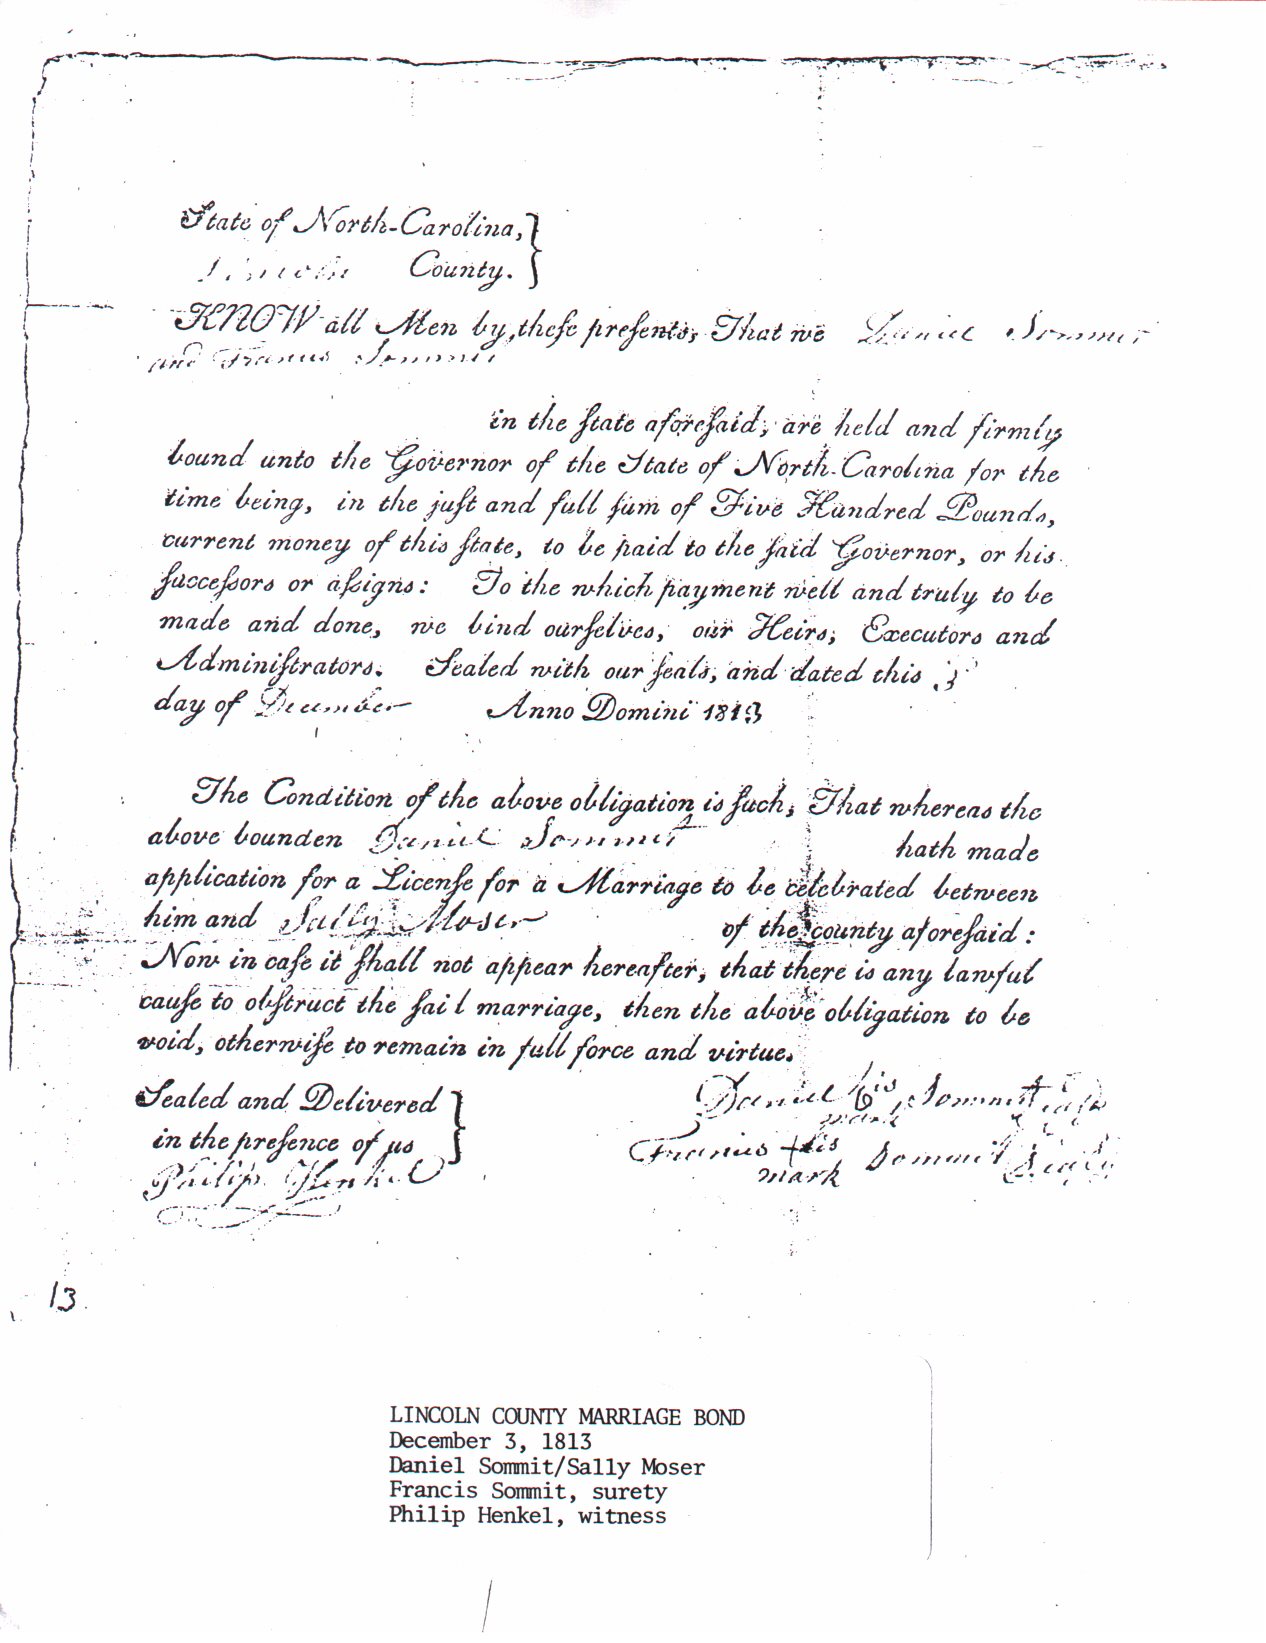 State of North-Carolina, }
Lincoln County. }
KNOW all Men by theſe preſents, That we Daniel Sommit
and Francis Sommit
in the ſtate aforeſaid, are held and firmly
bound unto the Governor of the State of North-Carolina for the
time being, in the juſt and full ſum of Five Hundred Pounds,
current money of this ſtate, to be paid to the ſaid Governor, or his
ſucceſſors or aſsigns: To the which payment well and truly to be
made and done, we bind ourſelves, our Heirs, Executors and
Adminiſtrators. Sealed with our ſeals, and dated this 3
day of December Anno Domini 1813
The Condition of the above obligation is ſuch, That whereas the
above bounden Daniel Sommit hath made
application for a Licenſe for a Marriage to be celebrated between
him and Sally Moser of the county aforeſaid:
Now in caſe it ſhall not appear hereafter, that there is any lawful
cauſe to obſtruct the ſaid marriage, then the above obligation to be
void, otherwiſe to remain in full force and virtue.
Sealed and Delivered }
in the preſence of us
Philip Henkel
Daniel his Sommit Seal
mark
Francis + his Sommit Seal
mark
13
LINCOLN COUNTY MARRIAGE BOND
December 3, 1813
Daniel Sommit/Sally Moser
Francis Sommit, surety
Philip Henkel, witness